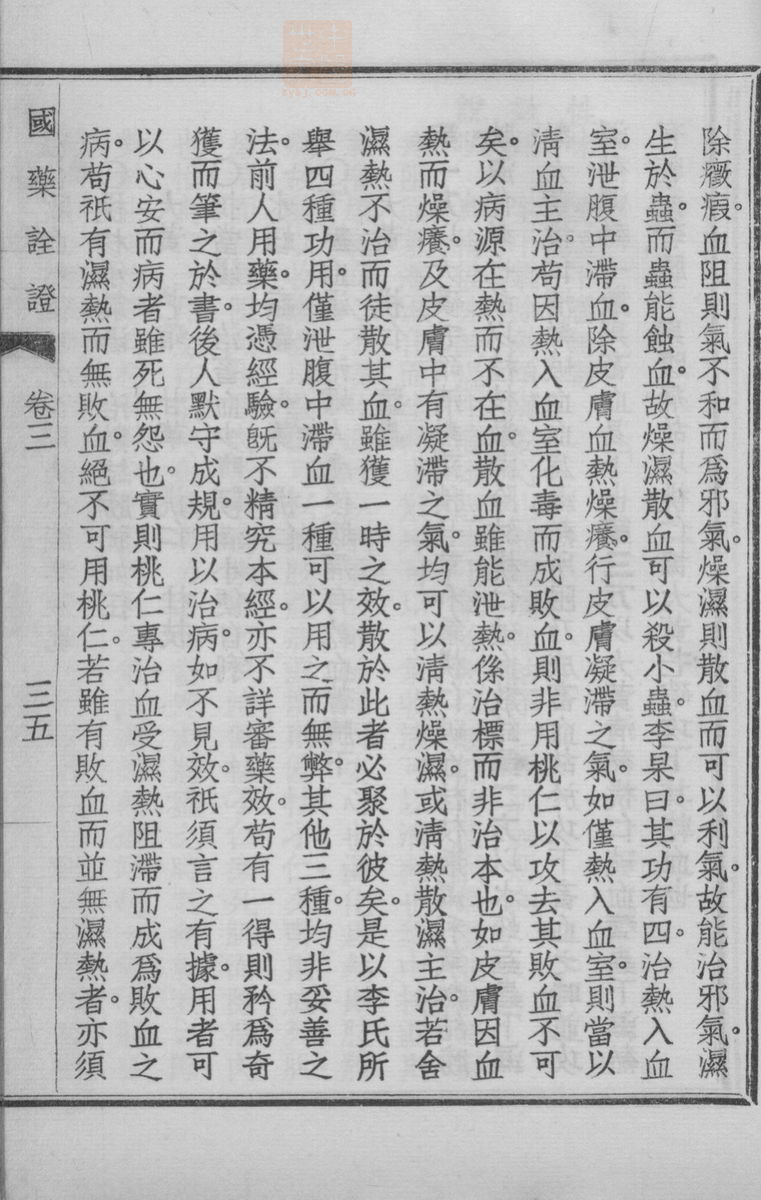 除癥瘕。血阻則氣不和而爲邪氣。燥濕則散血而可以利氣。故能治邪氣。濕
生於蟲。而蟲能蝕血。故燥濕散血可以殺小蟲。李杲曰。其功有四。治熱入血
室。泄腹中滯血。除皮膚血熱燥癢。行皮膚凝滯之氣。如僅熱入血室。則當以
淸血主治。苟因熱入血室化毒而成敗血。則非用桃仁以攻去其敗血不可
矣。以病源在熱而不在血。散血雖能泄熱。係治標而非治本也。如皮膚因血
熱而燥癢。及皮膚中有凝滯之氣。均可以淸熱燥濕。或淸熱散濕主治。若舍
濕熱不治而徒散其血。雖獲一時之效。散於此者必聚於彼矣。是以李氏所
舉四種功用。僅泄腹中滯血一種可以用之而無弊。其他三種。均非妥善之
法。前人用藥。均憑經驗。旣不精究本經。亦不詳審藥效。苟有一得則矜爲奇
獲而筆之於書。後人默守成規。用以治病。如不見效。祇須言之有據。用者可
以心安而病者雖死無怨也。實則桃仁專治血受濕熱阻滯而成爲敗血之
病。苟祇有濕熱而無敗血。絕不可用桃仁。若雖有敗血而並無濕熱者。亦須
國藥詮證
卷三
三五